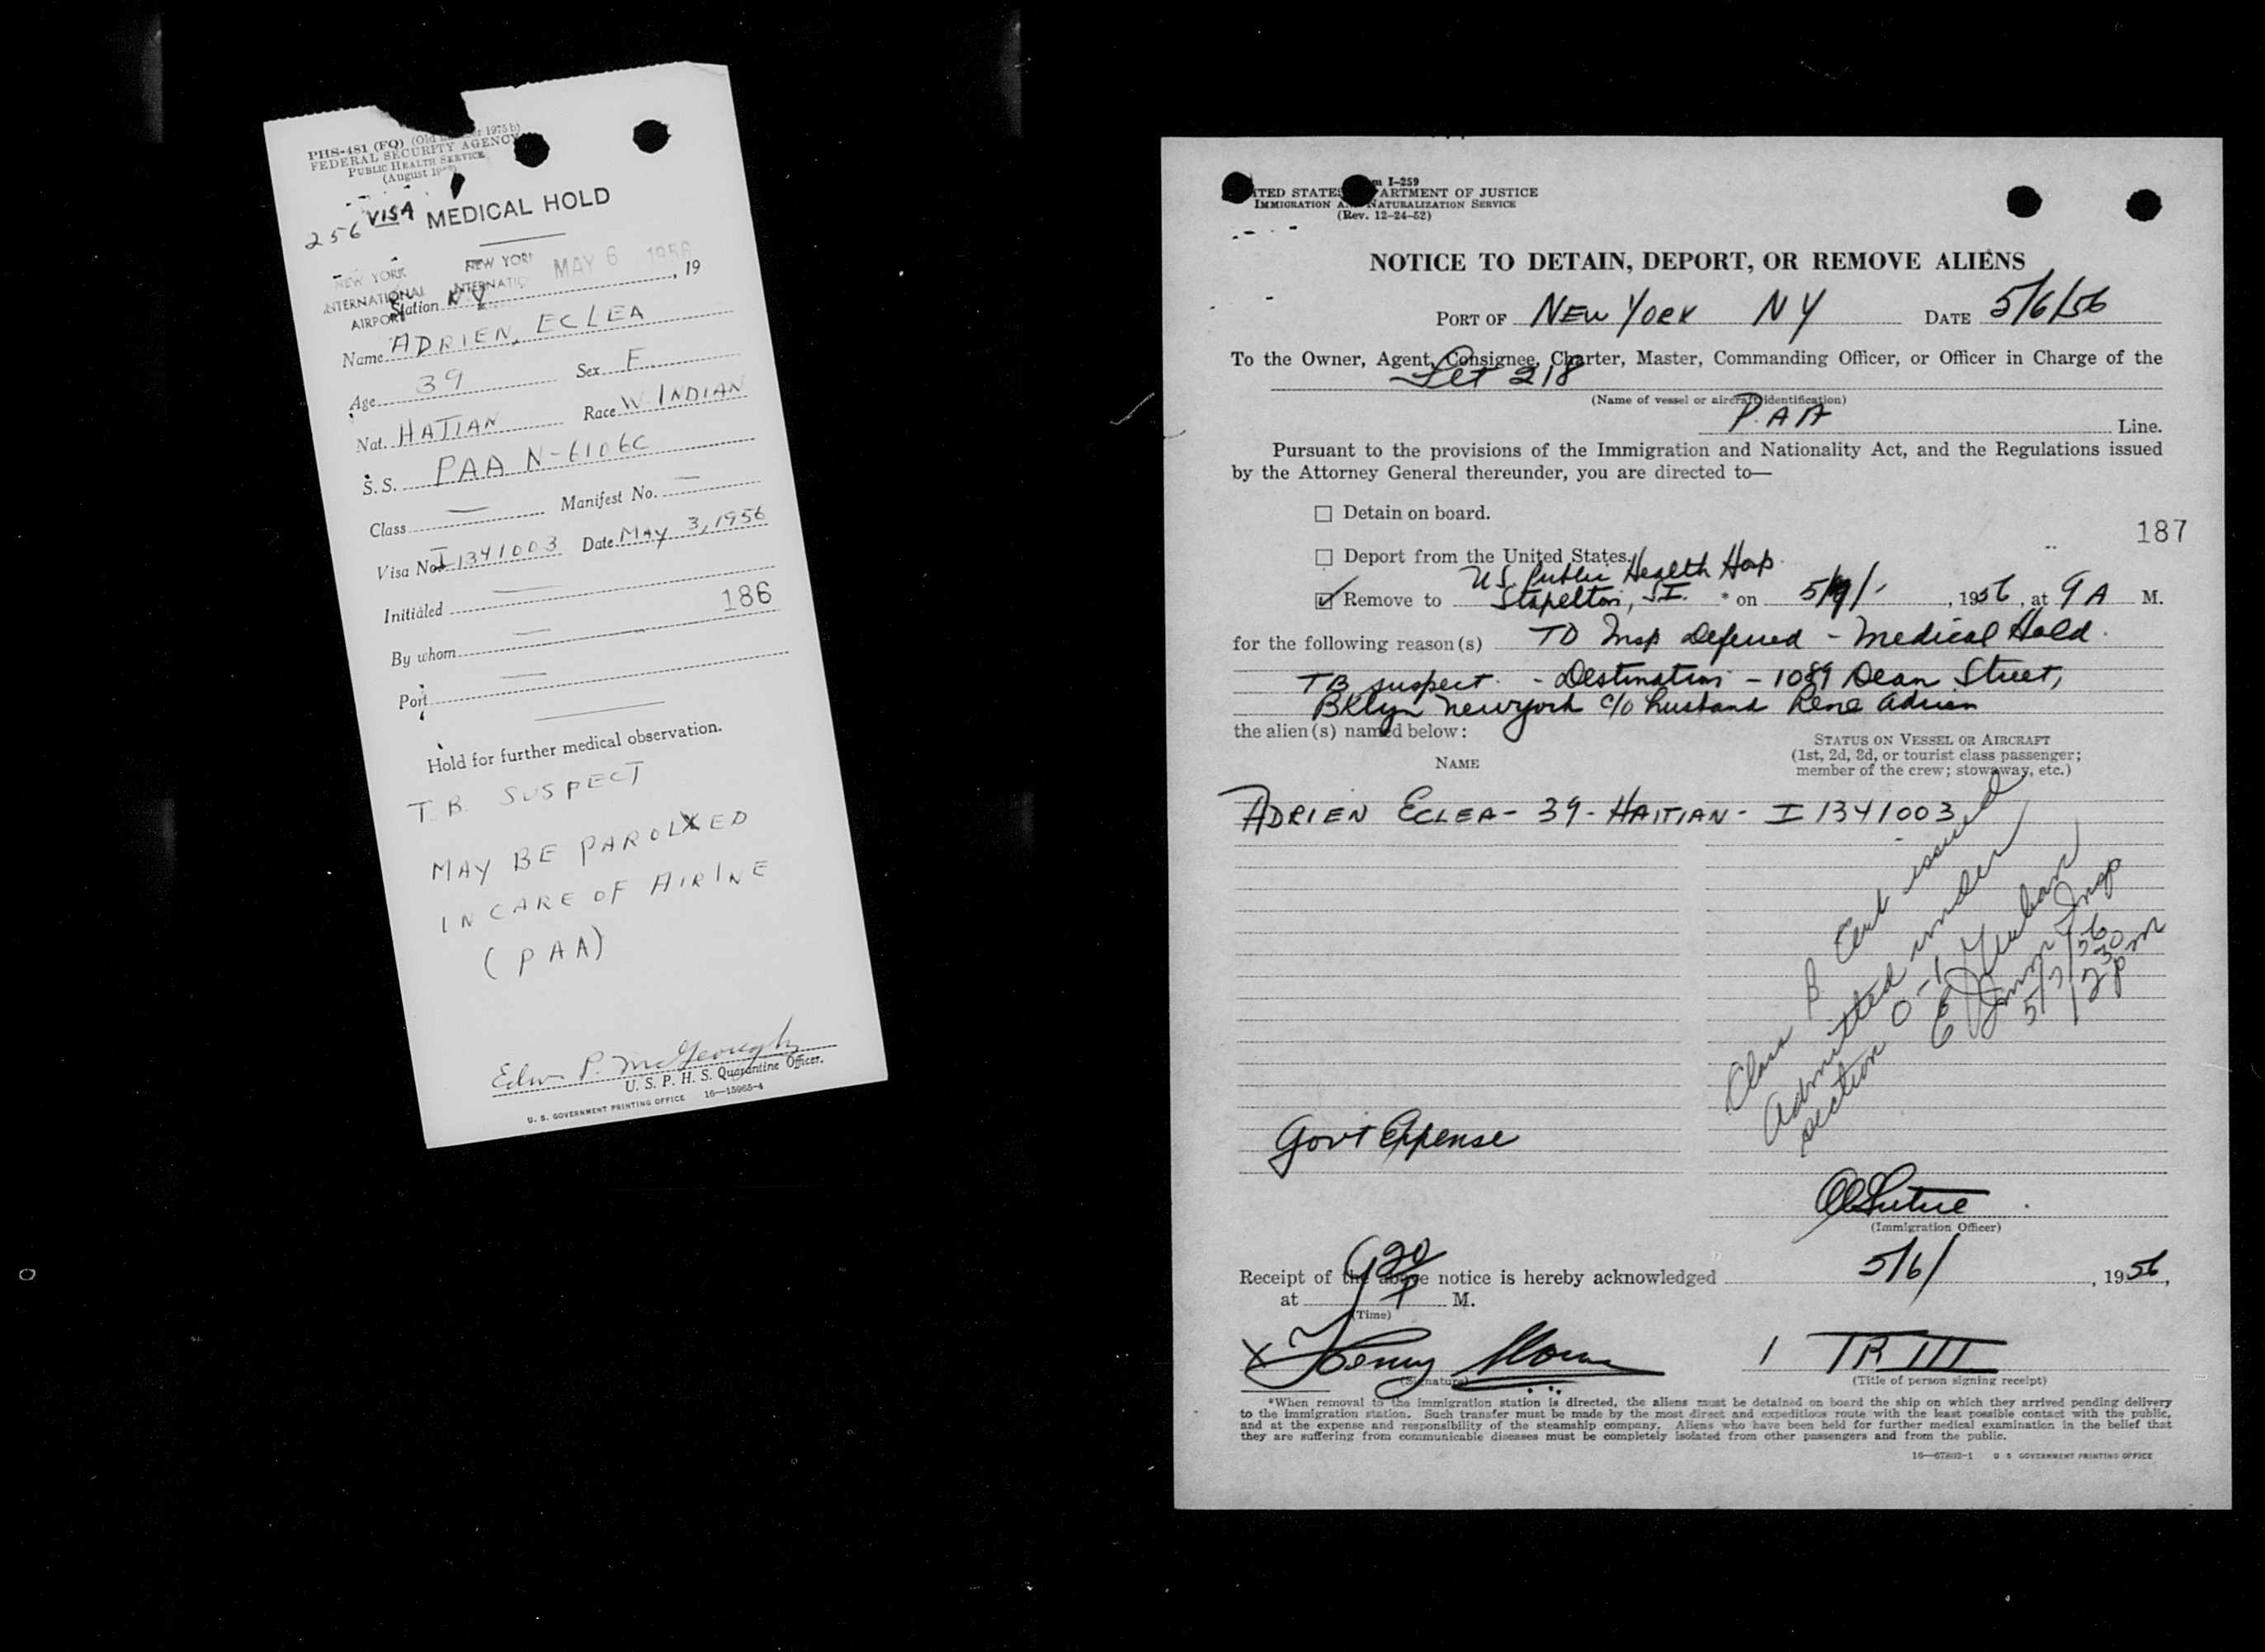 PHS-481 (FQ) (Old 1975 b)
FEDERAL SECURITY AGENCY
PUBLIC HEALTH SERVICE
(August
256 VISA MEDICAL HOLD
NEW YORK INTERNATIONAL AIRPORT
NEW YORK INTERNATIO
MAY 6 1956
Station N.Y. , 19
Name ADRIEN, ECLEA
Age 39 Sex F
Nat. HATIAN Race W. INDIAN
S. S. PAA N-6106C
Class — Manifest No. —
Visa No. I 1341003 Date MAY 3, 1956
Initialed —
186
By whom —
Port —
Hold for further medical observation.
T. B. SUSPECT
MAY BE PAROLXED
IN CARE OF AIRINE
(PAA)
Edw P. McGeough
U. S. P. H. S. Quarantine Officer.
U. S. GOVERNMENT PRINTING OFFICE 16—15965-4
m I-259
ITED STATES ARTMENT OF JUSTICE
IMMIGRATION A NATURALIZATION SERVICE
(Rev. 12-24-52)
NOTICE TO DETAIN, DEPORT, OR REMOVE ALIENS
PORT OF NEW YORK NY DATE 5/6/56
To the Owner, Agent, Consignee, Charter, Master, Commanding Officer, or Officer in Charge of the
218
(Name of vessel or aircraft identification)
P.A.A Line.
Pursuant to the provisions of the Immigration and Nationality Act, and the Regulations issued
by the Attorney General thereunder, you are directed to—
☐ Detain on board.
187
☐ Deport from the United States.
US. Public Health Hosp.
☑ Remove to Stapelton, S.I. * on 5/ / , 1956, at 9 A M.
for the following reason(s) TD Insp Deferred - Medical Hold.
TB suspect. - Destination - 1089 Dean Street,
Bklyn New York c/o husband Rene Adrien
the alien(s) named below:
NAME
STATUS ON VESSEL OR AIRCRAFT
(1st, 2d, 3d, or tourist class passenger;
member of the crew; stowaway, etc.)
ADRIEN ECLEA - 39 - HAITIAN - I 1341003
Class B Cert issued
Admitted under
section 0-1
E
Immr Insp
5/7/56
12 30 pm
Govt Expense
(Immigration Officer)
Receipt of the above notice is hereby acknowledged 5/6/ , 1956,
at 9 20 P M.
(Time)
X Henry
(Signature)
1 TR III
(Title of person signing receipt)
*When removal to the immigration station is directed, the aliens must be detained on board the ship on which they arrived pending delivery
to the immigration station. Such transfer must be made by the most direct and expeditious route with the least possible contact with the public,
and at the expense and responsibility of the steamship company. Aliens who have been held for further medical examination in the belief that
they are suffering from communicable diseases must be completely isolated from other passengers and from the public.
U S GOVERNMENT PRINTING OFFICE